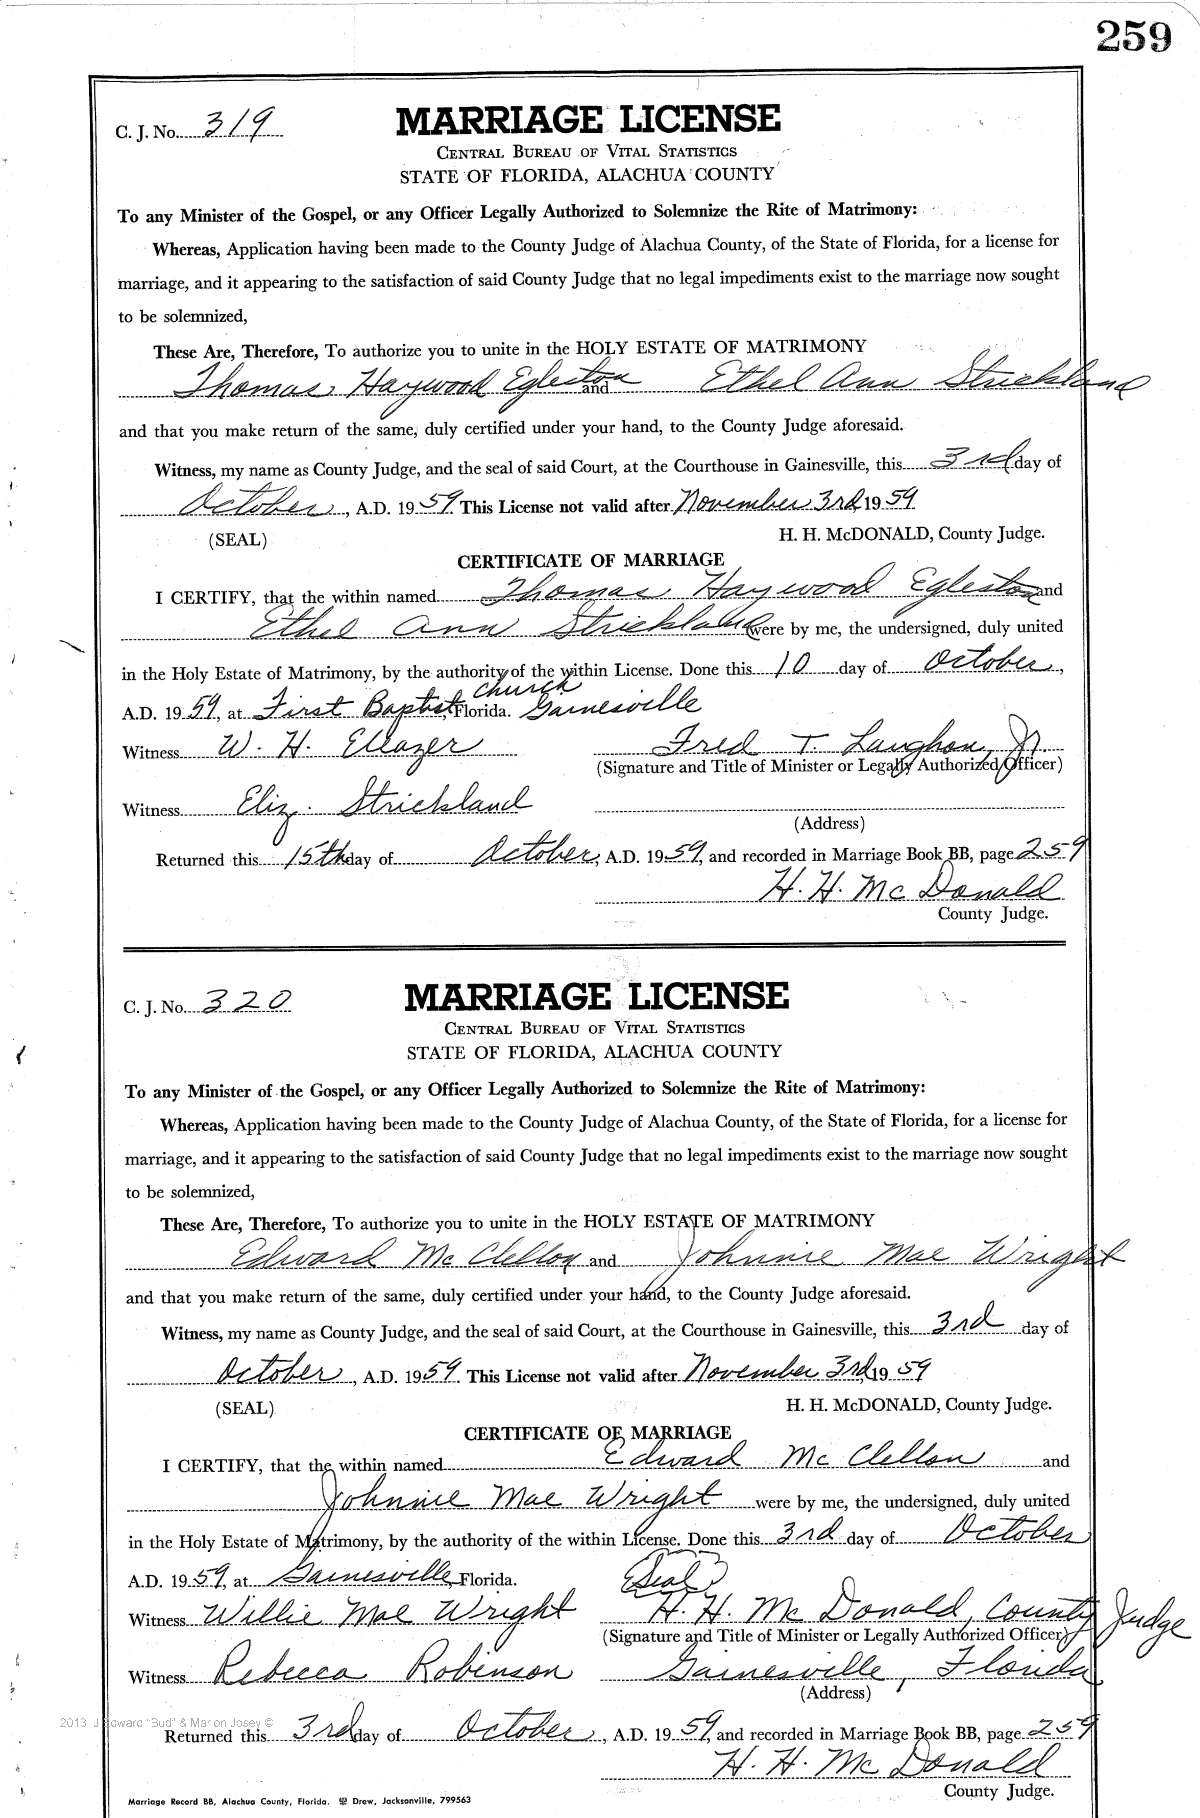 259
C. J. No. 319
MARRIAGE LICENSE
CENTRAL BUREAU OF VITAL STATISTICS
STATE OF FLORIDA, ALACHUA COUNTY
To any Minister of the Gospel, or any Officer Legally Authorized to Solemnize the Rite of Matrimony:
Whereas, Application having been made to the County Judge of Alachua County, of the State of Florida, for a license for
marriage, and it appearing to the satisfaction of said County Judge that no legal impediments exist to the marriage now sought
to be solemnized,
These Are, Therefore, To authorize you to unite in the HOLY ESTATE OF MATRIMONY
Thomas Haywood Egleston and Ethel Ann Strickland
and that you make return of the same, duly certified under your hand, to the County Judge aforesaid.
Witness, my name as County Judge, and the seal of said Court, at the Courthouse in Gainesville, this 3rd day of
October, A.D. 1959. This License not valid after November 3rd, 1959
(SEAL) H. H. McDONALD, County Judge.
CERTIFICATE OF MARRIAGE
I CERTIFY, that the within named Thomas Haywood Egleston and
Ethel Ann Strickland were by me, the undersigned, duly united
in the Holy Estate of Matrimony, by the authority of the within License. Done this 10 day of October,
A.D. 1959, at First Baptist Church, Florida. Gainesville
Witness W. H. Eleazer Fred T. Laughon, Jr.
(Signature and Title of Minister or Legally Authorized Officer)
Witness Eliz. Strickland
(Address)
Returned this 15th day of October, A.D. 1959, and recorded in Marriage Book BB, page 259
H. H. McDonald
County Judge.
C. J. No. 320
MARRIAGE LICENSE
CENTRAL BUREAU OF VITAL STATISTICS
STATE OF FLORIDA, ALACHUA COUNTY
To any Minister of the Gospel, or any Officer Legally Authorized to Solemnize the Rite of Matrimony:
Whereas, Application having been made to the County Judge of Alachua County, of the State of Florida, for a license for
marriage, and it appearing to the satisfaction of said County Judge that no legal impediments exist to the marriage now sought
to be solemnized,
These Are, Therefore, To authorize you to unite in the HOLY ESTATE OF MATRIMONY
Edward McClellon and Johnnie Mae Wright
and that you make return of the same, duly certified under your hand, to the County Judge aforesaid.
Witness, my name as County Judge, and the seal of said Court, at the Courthouse in Gainesville, this 3rd day of
October, A.D. 1959. This License not valid after November 3rd, 1959
(SEAL) H. H. McDONALD, County Judge.
CERTIFICATE OF MARRIAGE
I CERTIFY, that the within named Edward McClellon and
Johnnie Mae Wright were by me, the undersigned, duly united
in the Holy Estate of Matrimony, by the authority of the within License. Done this 3rd day of October
A.D. 1959, at Gainesville, Florida. (Seal)
Witness Willie Mae Wright H. H. McDonald, County Judge
(Signature and Title of Minister or Legally Authorized Officer)
Witness Rebecca Robinson Gainesville, Florida
(Address)
2013 J Edward "Bud" & Marion Josey ©
Returned this 3rd day of October, A.D. 1959, and recorded in Marriage Book BB, page 259
H. H. McDonald
County Judge.
Marriage Record BB, Alachua County, Florida. Drew, Jacksonville, 799563